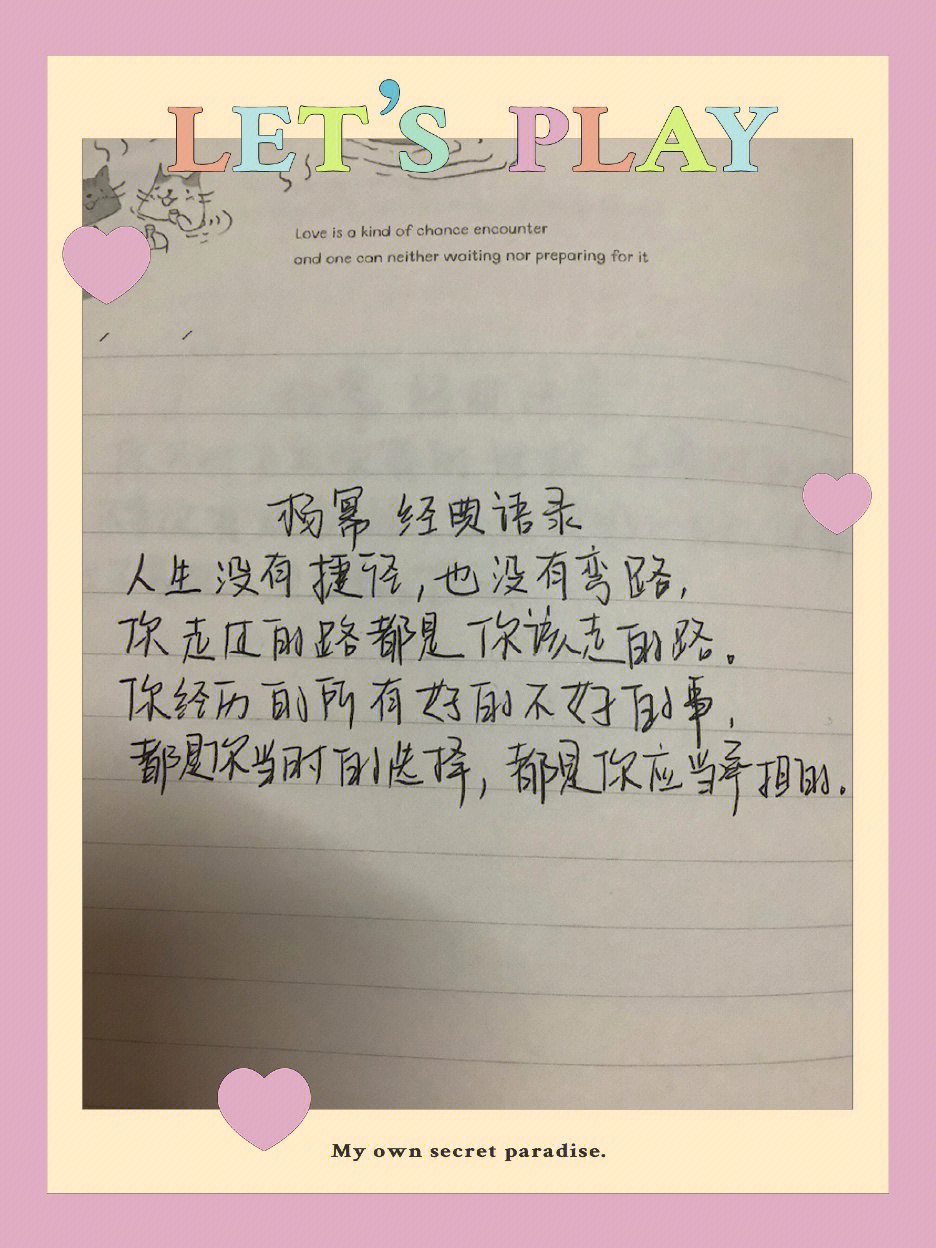 LET'S PLAY
Love is a kind of chance encounter
and one can neither waiting nor preparing for it
杨幂 经典语录
人生没有捷径,也没有弯路,
你走过的路都是你该走的路。
你经历的所有好的不好的事,
都是你当时的选择,都是你应当承担的.
My own secret paradise.